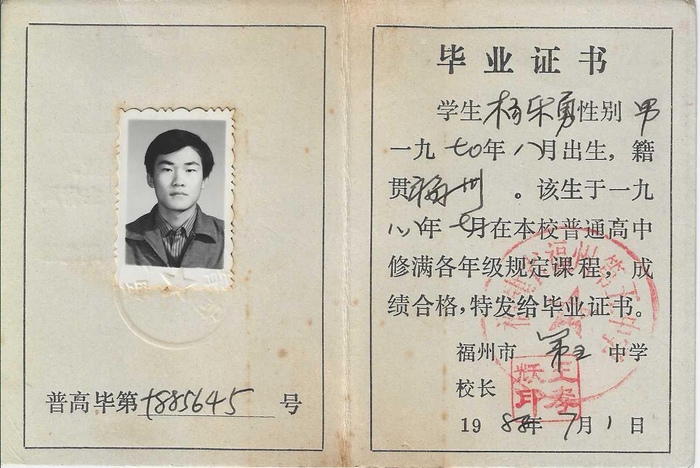 普高毕第 7885645 号
毕业证书
学生 杨乐勇 性别 男
一九 七0年 八月出生，籍
贯 福州 。该生于一九
八八年 七月在本校普通高中
修满各年级规定课程，成
绩合格，特发给毕业证书。
福州市 第五 中学
校长
19 88年 7月 1日